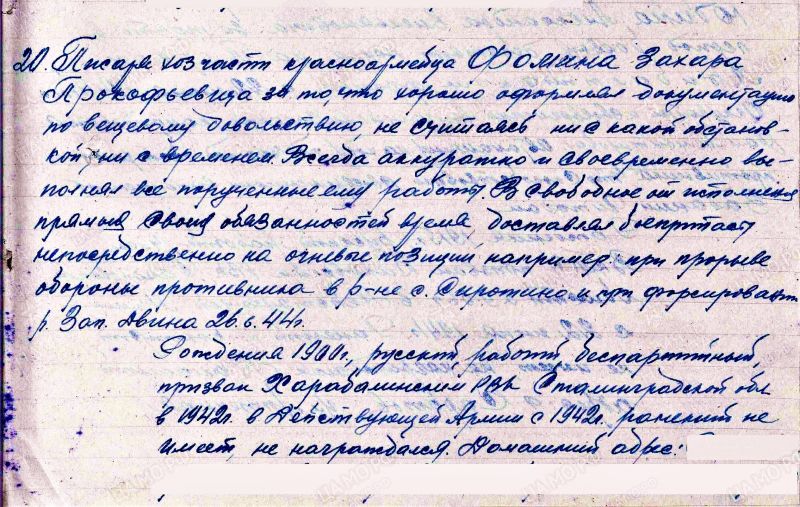 20. Писаря хоз части красноармейца Фомина Захара
Прокофьевича за то, что хорошо оформлял документацию
по вещевому довольствию, не считаясь ни с какой обстанов-
кой, ни с временем. Всегда аккуратно и своевременно вы-
полнял все порученные ему работы. В свободное от исполнения
прямых своих обязанностей время доставлял боеприпасы
непосредственно на огневые позиции, например при прорыве
обороны противника в р-не с. Сиротино и при форсировании
р. Зап. Двина 26.6.44г.
Рождения 1900г., русский, рабочий, беспартийный,
призван Харабалинским РВК Сталинградской обл
в 1942г. в Действующей Армии с 1942г. ранений не
имеет, не награждался. Домашний адрес: